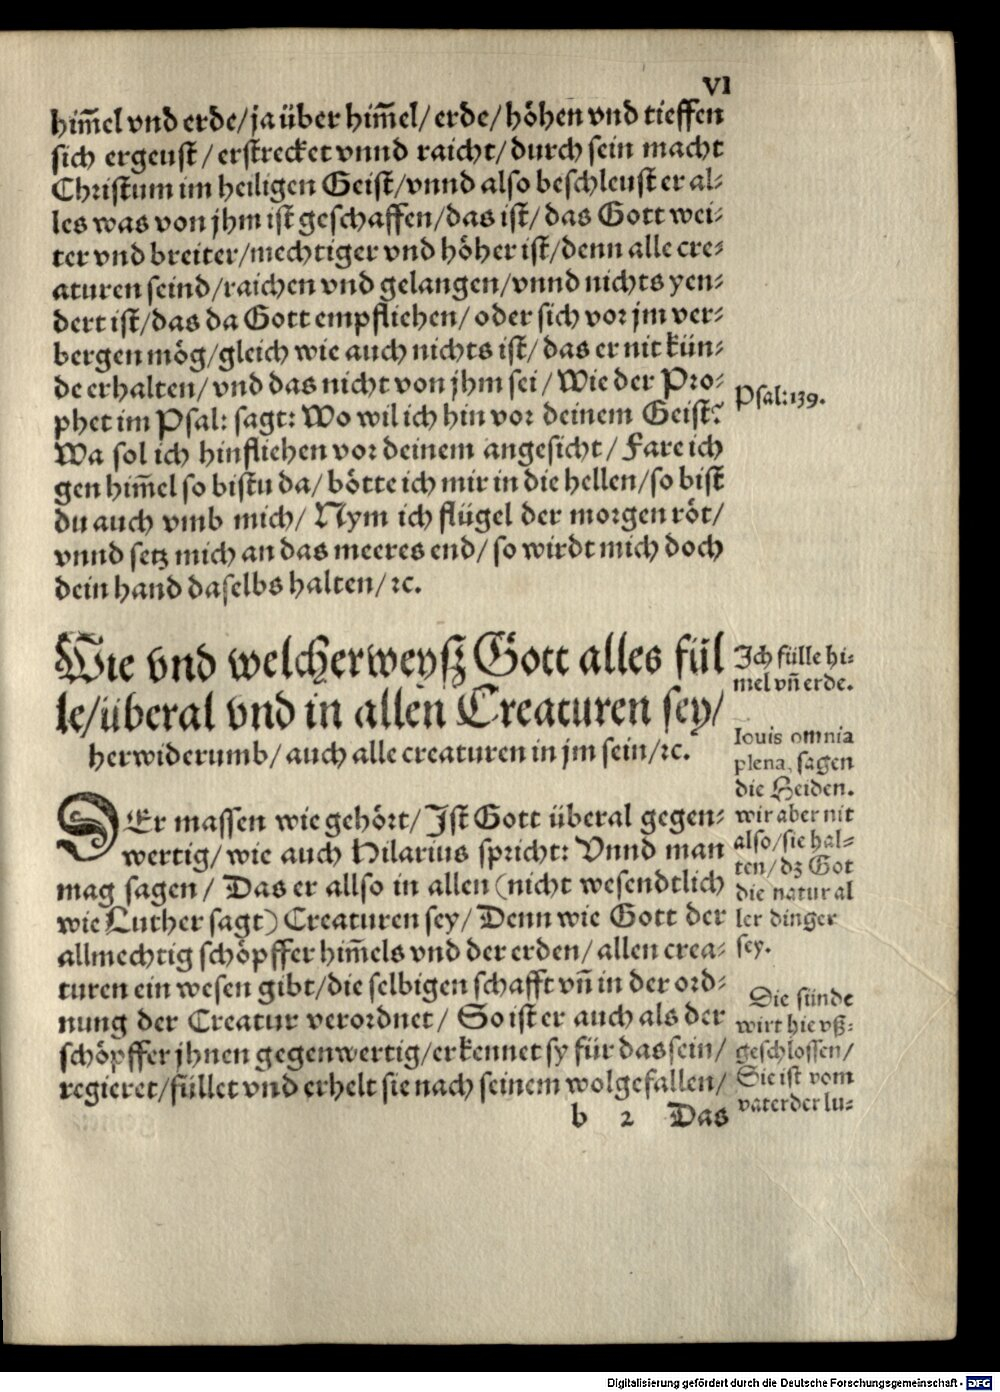 VI
him̃el vnd erde/ja über him̃el/ erde/ höhen vnd tieffen
sich ergeust / erstrecket vnnd raicht/ durch sein macht
Christum im heiligen Geist/vnnd also beschleust er al⸗
les was von jhm ist geschaffen/das ist/ das Gott wei⸗
ter vnd breiter/mechtiger vnd höher ist/denn alle cre⸗
aturen seind/raichen vnd gelangen/vnnd nichts yen⸗
dert ist/das da Gott empfliehen/ oder sich vor jm ver⸗
bergen mög/gleich wie auch nichts ist/ das er nit kün⸗
de erhalten/ vnd das nicht von jhm sei / Wie der Pro⸗
phet im Psal: sagt: Wo wil ich hin vor deinem Geist?
Wa sol ich hinfliehen vor deinem angesicht / Fare ich
gen him̃el so bistu da/ bötte ich mir in die hellen/so bist
du auch vmb mich/ Nym ich flügel der morgen röt/
vnnd setz mich an das meeres end/ so wirdt mich doch
dein hand daselbs halten/ ꝛc.
Psal:139.
Wie vnd welcherweysz Gott alles fül
le/überal vnd in allen Creaturen sey/
herwiderumb/ auch alle creaturen in jm sein/ꝛc.
Ich fülle hi⸗
mel vñ erde.
Iouis omnia
plena, sagen
die Heiden.
wir aber nit
also/sie hal⸗
ten/ dz Got
die natur al
ler dinger
sey.
DEr massen wie gehört/ Ist Gott überal gegen⸗
wertig/ wie auch Hilarius spricht: Vnnd man
mag sagen / Das er allso in allen (nicht wesendtlich
wie Luther sagt) Creaturen sey/ Denn wie Gott der
allmechtig schöpffer him̃els vnd der erden/ allen crea⸗
turen ein wesen gibt/die selbigen schafft vñ in der ord⸗
nung der Creatur verordnet/ So ist er auch als der
schöpffer jhnen gegenwertig/erkennet sy für das sein/
regieret/füllet vnd erhelt sie nach seinem wolgefallen/
Die sünde
wirt hie vß⸗
geschlossen/
Sie ist vom
vater der lu⸗
b 2 Das
Digitalisierung gefördert durch die Deutsche Forschungsgemeinschaft - DFG